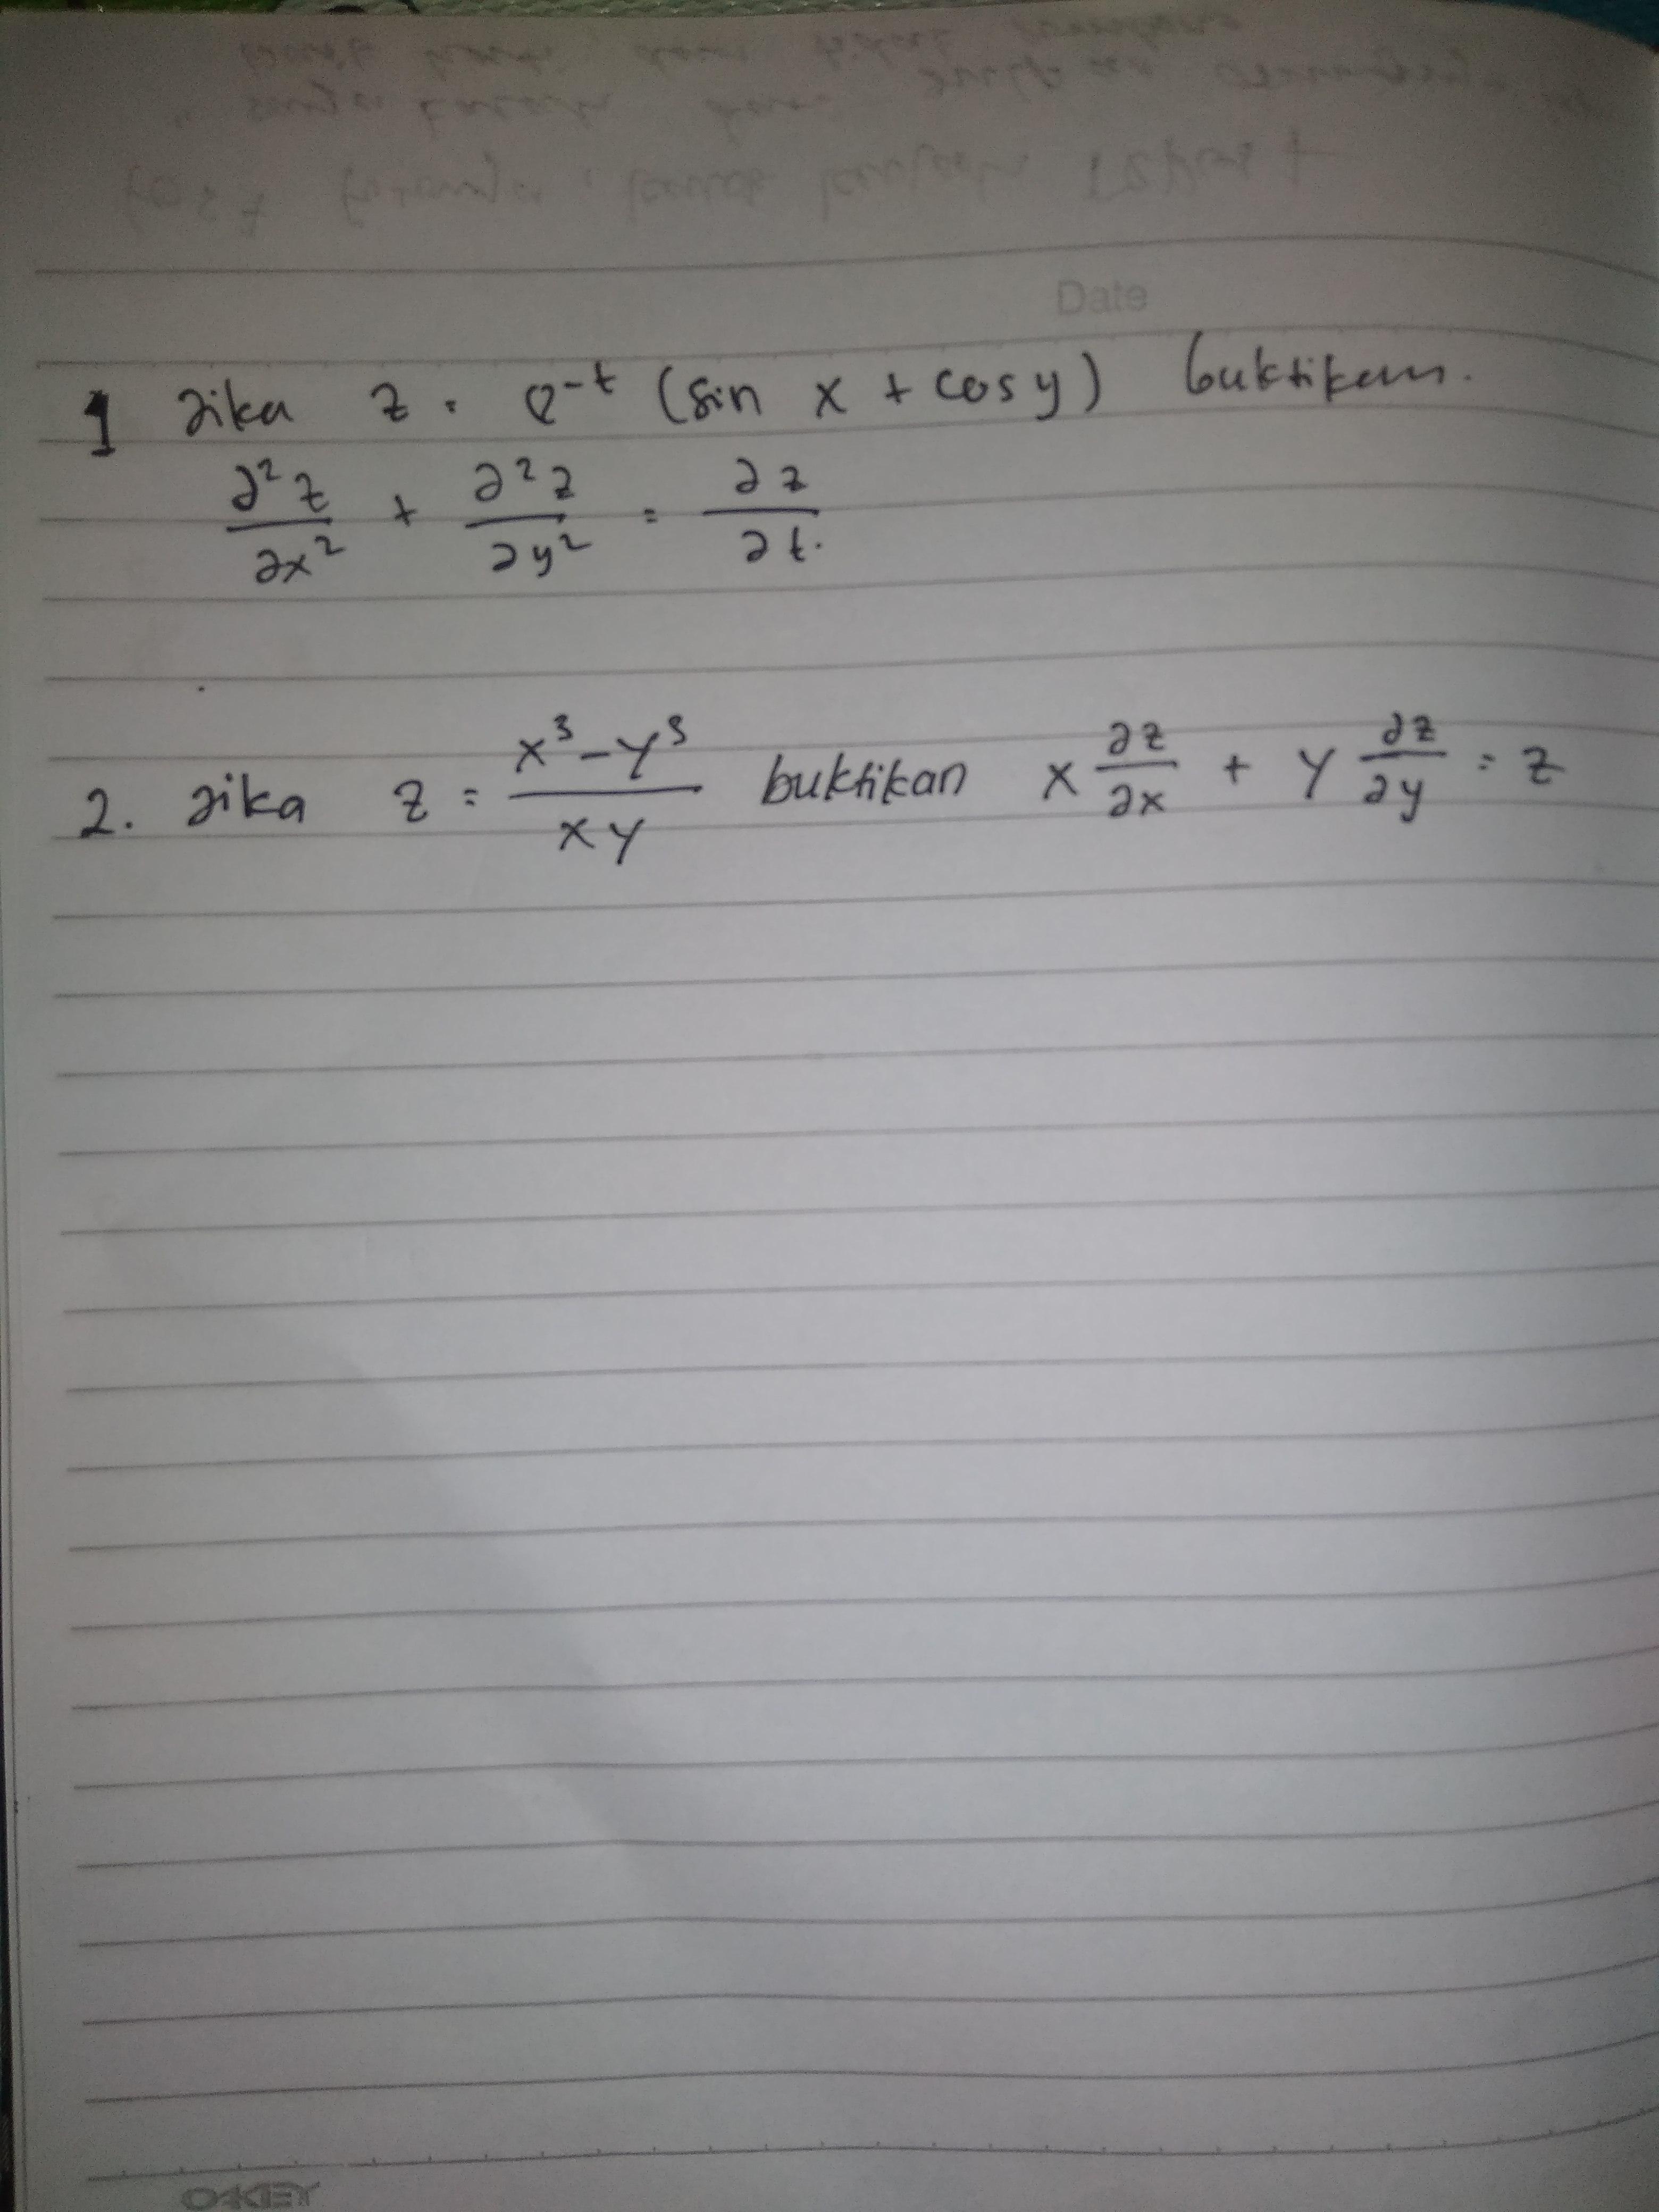 Date
1 Jika z = e^-t (sin x + cos y) buktikan.
∂²z/∂x² + ∂²z/∂y² = ∂z/∂t.
2. Jika z = x³-y³/xy buktikan x ∂z/∂x + y ∂z/∂y = z
OKEY